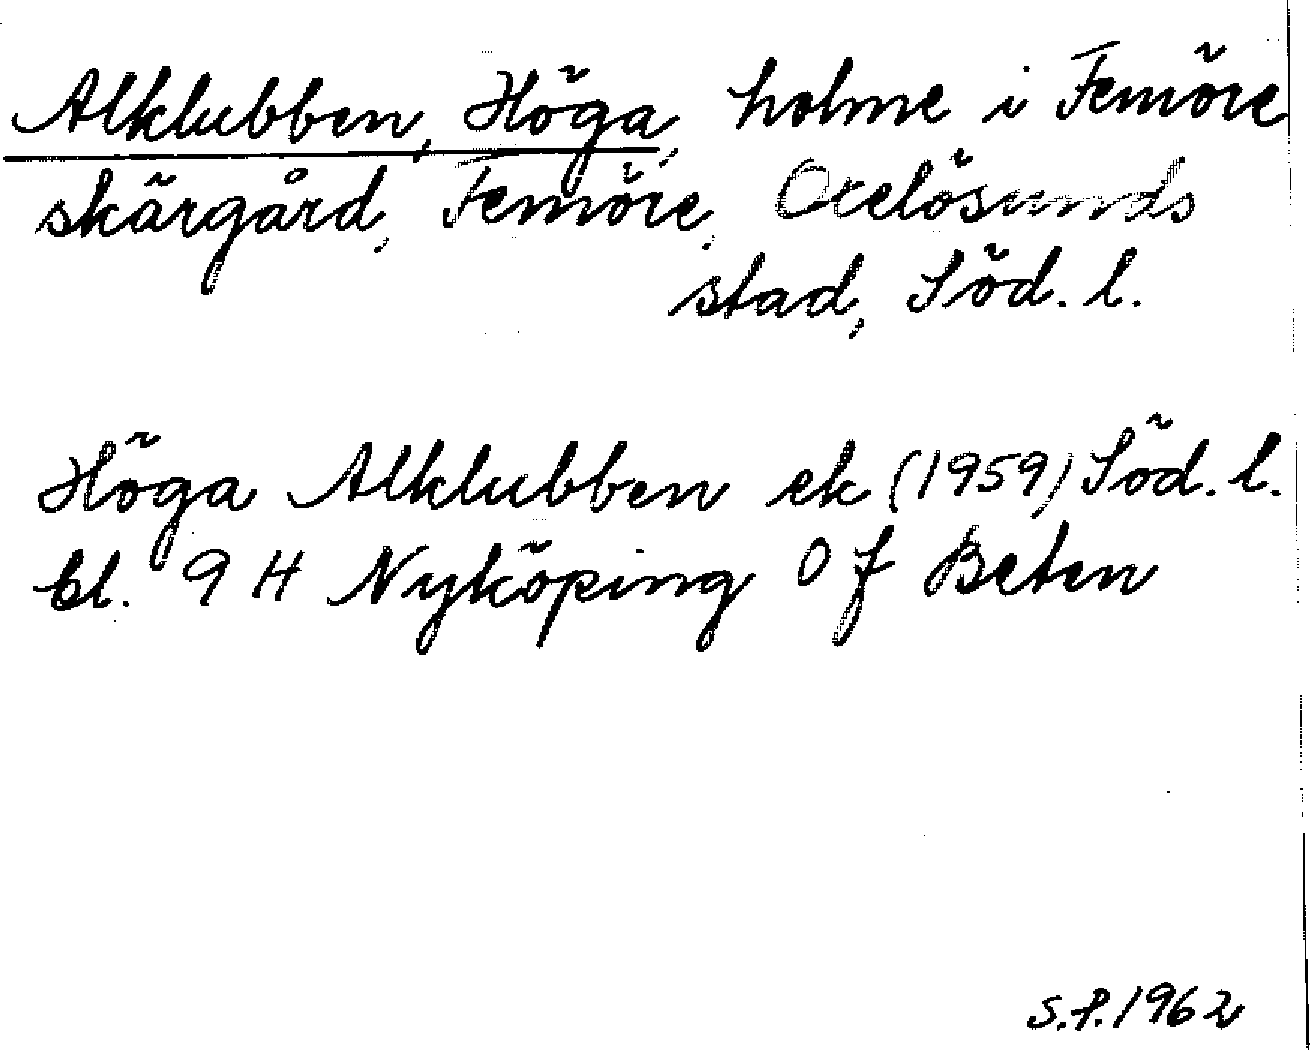 Alklubben, Höga, holme i Femöre
skärgård, Femöre, Oxelösunds
stad, Söd. l.
Höga Alklubben ek (1959) Söd. l.
bl. 9 H Nyköping 0 f Beten
S.P. 1962